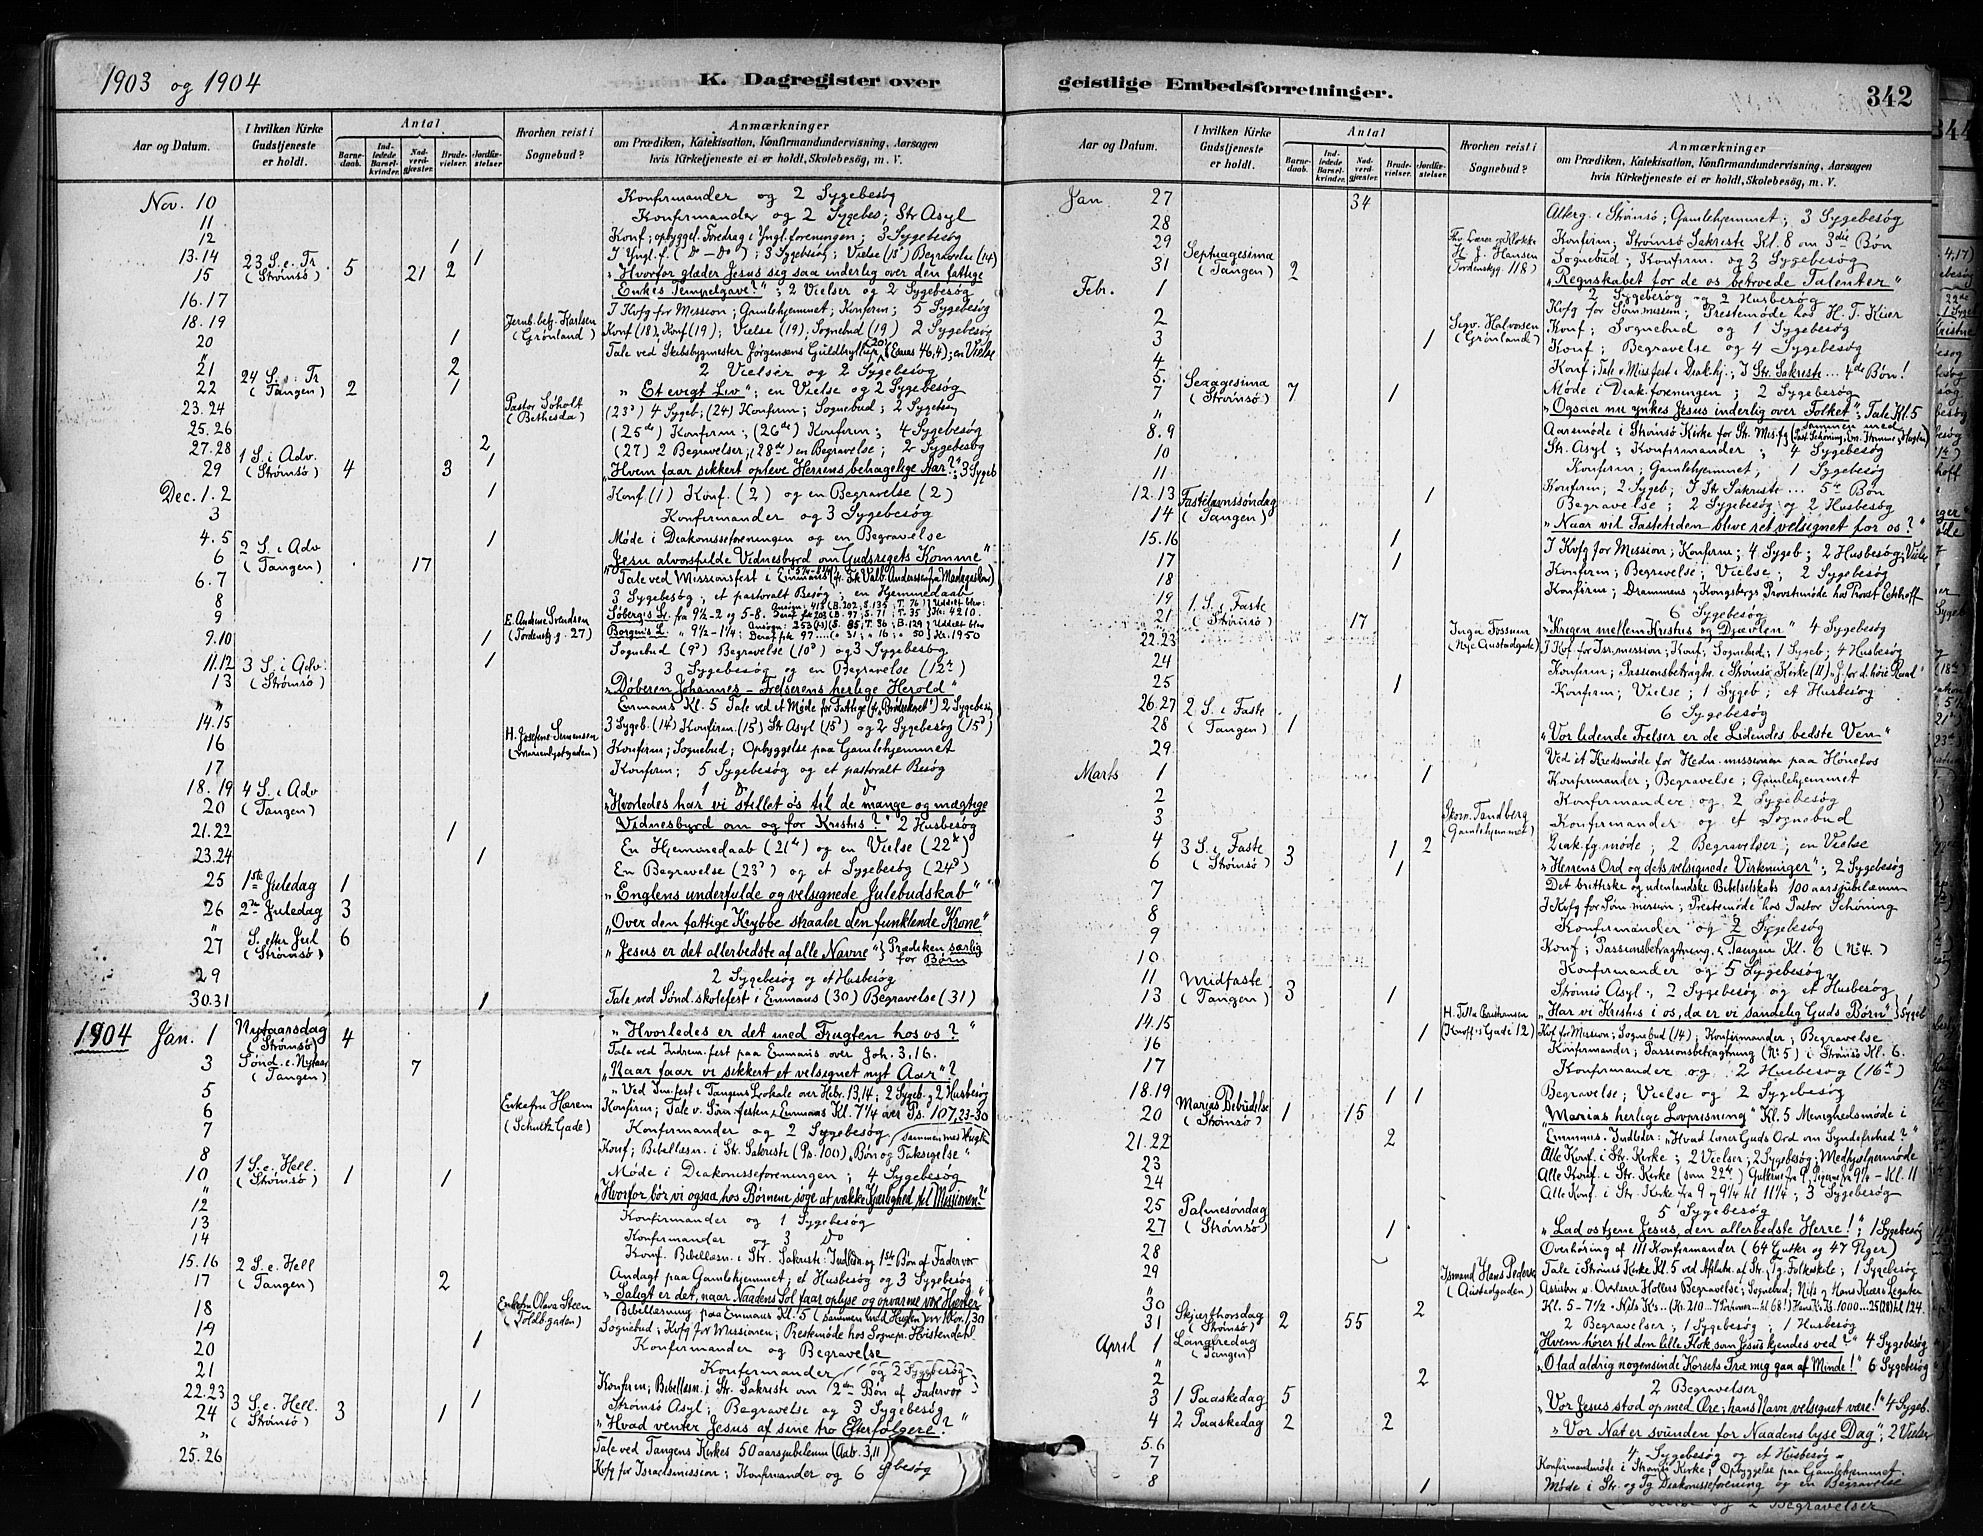 1903 og 1904
K. Dagregister over
Aar og Datum.
I hvilken Kirke Gudstjeneste er holdt.
Antal
Barnedaab.
Indledede Barselkvinder.
Nadverdgjæster.
Brudevielser.
Jordfæstelser
Hvorhen reist i Sognebud?
Anmærkninger
om Prædiken, Katekisation, Konfirmandundervisning, Aarsagen
hvis Kirketjeneste ei er holdt, Skolebesøg, m. V.
Nov. 10 Konfirmander og 2 Sygebesøg
11 Konfirmander og 2 Sygebes; Str Asyl
12 Konf; opbyggel. Foredrag i Yngl. foreningen; 3 Sygebesøg
13.14 1 1 I Yngl. f. (Do - Do); 3 Sygebesøg; Vielse (13) Begravelse (14)
15 23 S. e. Tr (Strømsø) 5 21 2 "Hvorfor glæder Jesus sig saa inderlig over den fattige
Enkes Tempelgave?"; 2 Vielser og 2 Sygebesøg
16.17 I Kvfg for Mission; Gamlehjemmet; Konfirm; 5 Sygebesøg
18.19 Jernb. betj. Karlsen (Grønland) Konf (18), Konf (19); Vielse (19), Sognebud (19) 2 Sygebesøg
20 1 Tale ved Skibsbygmester Jørgensens Guldbryllup (Esaias 46,4); en Vielse
21 2 2 Vielser og 2 Sygebesøg
22 24 S. e. Tr (Tangen) 2 1 "Et evigt Liv"; en Vielse og 2 Sygebesøg
23.24 Pastor Søholt (Bethesda) (23) 4 Sygeb; (24) Konfirm; Sognebud; 2 Sygebesøg
25.26 (25de) Konfirm; (26de) Konfirm; 4 Sygebesøg
27.28 2 1 (27) 2 Begravelser; (28de) en Begravelse; 2 Sygebesøg
29 1 S. i Adv. (Strømsø) 4 3 "Hvem faar sikkert opleve Herrens behagelige Aar?"; 3 Sygeb
Dec. 1.2 1 Konf (1) Konf. (2) og en Begravelse (2)
3 Konfirmander og 3 Sygebesøg
4.5 1 Møde i Diakonisseforeningen og en Begravelse
6 2 S. i Adv (Tangen) 17 "Jesu alvorsfulde Vidnesbyrd om Gudsrigets Komme"
6.7 Tale ved Missionsfest i Emmaus
8 3 Sygebesøg; et pastoralt Besøg; en Hjemmedaab
9 E. Andrine Svendsen (Tordenskj. g. 27) Søberg's L. fra 9½-2 og 5-8.
Borgen's L. " 9½-1¼:
9.10 1 Sognebud (9) Begravelse (10) og 3 Sygebesøg
11.12 1 3 Sygebesøg og en Begravelse (12te)
13 3 S. i Adv (Strømsø) "Døberen Johannes - Frelserens herlige Herold"
" Emmaus Kl. 5 Tale ved et Møde for Fattige 2 Sygebesøg
14.15 3 Sygeb. (14) Konfirm. (15) Str Asyl (15) og 2 Sygebesøg (15)
16 H. Josefine Simensen Konfirm; Sognebud; Opbyggelse paa Gamlehjemmet
17 Konfirm; 5 Sygebesøg og et pastoralt Besøg
18.19 1 Do 1 Do
20 4 S. i Adv (Tangen) "Hvorledes har vi stillet os til de mange og mægtige
Vidnesbyrd om og for Kristus?" 2 Husbesøg
21.22 1 En Hjemmedaab (21de) og en Vielse (22de)
23.24 1 En Begravelse (23) og et Sygebesøg (24)
25 1ste Juledag 1 "Englens underfulde og velsignede Julebudskab"
26 2den Juledag 3 "Over den fattige Krybbe straaler den funklende Krone"
27 S. efter Jul (Strømsø) 6 "Jesus er det allerbedste af alle Navne" } Prædiken særlig for Børn
29 2 Sygebesøg og et Husbesøg
30.31 1 Tale ved Sønd. skolefest i Emmaus (30) Begravelse (31)
1904 Jan. 1 Nytaarsdag (Strømsø) 4 "Hvorledes er det med Frugten hos os?"
Tale ved Indrem. fest paa Emmaus over Joh. 3,16.
3 Sønd. e. Nytaar (Tangen) 7 "Naar faar vi sikkert et velsignet nyt Aar"?
5 Ved Im. fest i Tangens Lokale over Hebr. 13,14; 2 Sygeb. og 2 Husbesøg
6 Enkefru Harem (Schultz Gade) Konfirm; Tale v. Søm. festen i Emmaus Kl. 7¼ over Ps. 107,23-30
7 Konfirmander og 2 Sygebesøg (sammen med Hugten
8 Konf; Bibellæsn. i Str. Sakristi (Ps. 100) "Bøn og Taksigelse"
10 1 S. e. Hell. (Strømsø) 1 1 Møde i Diakonisseforeningen; 4 Sygebesøg
" "Hvorfor bør vi ogsaa hos Børnene søge at vække Kjærlighed til Missionen?"
12 Konfirmander og 1 Sygebesøg
13 Konfirmander og 3 Do
14 Konf. Bibellæsn. i Str. Sakristi: Indledn og 1ste Bøn af Fadervor
15.16 Andagt paa Gamlehjemmet; et Husbesøg og 3 Sygebesøg
17 2 S. e. Hell (Tangen) 2 "Saligt er det, naar Naadens Sol faar oplyse og opvarme vore Hjerter"
18 Enkefru Olava Steen (Toldbgaden) Bibellæsning paa Emmaus Kl. 5 (sammen med Hugten) over 1 Kor. 1,30
19 Sognebud; Kvfg for Missionen; Prestemøde hos Sognepr. Christendahl
20 1 Konfirmander og Begravelse
21 Konfirmander (og 2 Sygebesøg)
22.23 1 Konfirm; Bibellæsn. i Str. Sakristi om 2den Bøn af Fadervor
24 3 S. e. Hell. (Strømsø) 3 1 Strømsø Asyl; Begravelse og 3 Sygebesøg
" "Hvad venter Jesus af sine tro Efterfølgere?"
Tale ved Tangens Kirkes 50 aarsjubilæum (Aab. 3,11)
25.26 Kvfg for Israelsmission; Konfirmander og 6 besøg
geistlige Embedsforretninger.
342
Aar og Datum.
I hvilken Kirke Gudstjeneste er holdt.
Antal
Barnedaab.
Indledede Barselkvinder.
Nadverdgjæster.
Brudevielser.
Jordfæstelser.
Hvorhen reist i Sognebud?
Anmærkninger
om Prædiken, Katekisation, Konfirmandundervisning, Aarsagen
hvis Kirketjeneste ei er holdt, Skolebesøg, m. V.
Jan. 27 34 Alterg. i Strømsø; Gamlehjemmet; 3 Sygebesøg
28 Konfirm; Strømsø Sakristi Kl. 8 om 3die Bøn
29 Fhv. Lærer og Klokker H. J. Hansen (Tordenskj. g 118) Sognebud; Konfirm. og 3 Sygebesøg
31 Septuagesima (Tangen) 2 "Regnskabet for de os betroede Talenter"
2 Sygebesøg og 2 Husbesøg
Febr. 1 Kvfg for Søm. mission; Prestemøde hos H. T. Kiær
2 Sigv. Halvorsen (Grønland) Konf; Sognebud og 1 Sygebesøg
3 1 Konf; Begravelse og 4 Sygebesøg
4 Konf; Tale v Missfest i Diak. hj.; I Str. Sakristi ... 4de Bøn!
6. Møde i Diak. foreningen; 2 Sygebesøg
7 Sexagesima (Strømsø) 7 1 "Ogsaa nu ynkes Jesus inderlig over Folket"; Tale Kl. 5
" Aarsmøde i Strømsø Kirke for Str. Mis. fg
8.9 Str. Asyl; Konfirmander; 4 Sygebesøg
10 Konfirm; Gamlehjemmet; 1 Sygebesøg
11 Konfirm; 2 Sygeb; I Str Sakristi ... 5te Bøn
12.13 1 Begravelse; 2 Sygebesøg og 2 Husbesøg
14 Fastelavnssøndag (Tangen) "Naar vil Fastetiden blive ret velsignet for os?"
15.16 1 I Kvfg for Mission; Konfirm; 4 Sygeb; 2 Husbesøg; Vielse
17 1 Konfirm; Begravelse; Vielse; 2 Sygebesøg
18 Konfirm; Drammens og Kongsbergs Provstemøde hos Provst Eckhoff
19 6 Sygebesøg
21 1 S. i Faste (Strømsø) 17 "Krigen mellem Kristus og Djævlen" 4 Sygebesøg
22.23 Inga Fossum (Nye Austadgade) I Kvf. for Isr. mission; Konf; Sognebud; 1 Sygeb; 4 Husbesøg
24 Konfirm; Passionsbetragtn. i Strømsø Kirke (11)
25 1 Konfirm; Vielse; 1 Sygeb; et Husbesøg
26.27 6 Sygebesøg
28 2 S. i Faste (Tangen) 1 "Vor lidende Frelser er de Lidendes bedste Ven"
29 Ved et Kredsmøde for Hedn. missionen paa Hønefos
Marts 1 1 Konfirmander; Begravelse; Gamlehjemmet
2 Konfirmander og 2 Sygebesøg
3 Skom. Tandberg (Gamlehjemmet) Konfirmander og et Sognebud
4 1 2 Diak. fg møde; 2 Begravelser; en Vielse
6 3 S. i Faste (Strømsø) 3 1 "Herrens Ord og dets velsignede Virkninger"; 2 Sygebesøg
Det brittiske og udenlandske Bibelselskabs 100 aarsjubilæum
7 I Kvfg for Søm. mission; Prestemøde hos Pastor Schøning
8 Konfirmander og 2 Sygebesøg
9 Konf; Passionsbetragtning i Tangen Kl. 6 (No 4.)
10 Konfirmander og 5 Sygebesøg
11 Strømsø Asyl; 2 Sygebesøg og et Husbesøg
13 Midfaste (Tangen) 3 1 "Har vi Kristus i os, da er vi sandelig Guds Børn" } 1 Sygeb
14.15 1 Kvf. for Mission; Sognebud (14); Konfirmander; Begravelse
16 Konfirmander; Passionsbetragtning (No 5) i Strømsø Kl. 6.
17 Konfirmander og 2 Husbesøg (16de)
18.19 1 1 Begravelse; Vielse og 2 Sygebesøg
20 Marias Bebudelse (Strømsø) 1 15 "Marias herlige Lovprisning" Kl. 5 Menighedsmøde i
21.22 2 Emmaus. Indleder: "Hvad lærer Guds Ord om Syndefrihed?"
23 Alle Konf. i Str. Kirke; 2 Vielser; 2 Sygebesøg; Medhjælpermøde
24 Alle Konf. i Str. Kirke (som 22de) Gutterne fra 9, Pigerne fra 9¼ - Kl. 11
25 Alle Konf. i Str. Kirke fra 9 og 9¼ til 11¼; 3 Sygebesøg
5 Sygebesøg
27 Palmesøndag (Strømsø) 1 "Lad os tjene Jesus, den allerbedste Herre!"; 1 Sygebesøg
28 Overhøring af 111 Konfirmander (64 Gutter og 47 Piger)
29 Ismand Hans Pedersen (Austadgaden) Tale i Strømsø Kirke Kl. 5 ved Afslutn. af Str. Tg. Folkeskole; 1 Sygebesøg
"
30 2 2 Begravelser; 1 Sygebesøg; 1 Husbesøg
31 Skjærthorsdag (Strømsø) 2 55 "Hvem hører til den lille Flok, som Jesus kjendes ved?" 4 Sygebesøg
April 1 Langfredag (Tangen) "O lad aldrig nogensinde Korsets Træ mig gaa af Minde!" 6 Sygebesøg
"
2 2 2 Begravelser
3 1 Paaskedag 5 "Vor Jesus stod op med Ære; hans Navn velsignet være!" 4 Sygeb.
4 2 Paaskedag 2 2 "Vor Nat er svunden for Naadens lyse Dag"; 2 Vielser
5.6 4 Sygebesøg og et Husbesøg
7 Konfirmandmøde i Strømsø Kirke; Opbyggelse paa Gamlehjemmet.
8 1 Møde i Str. og Tg Diakonisseforening og en Begravelse
2 Begravelser
344